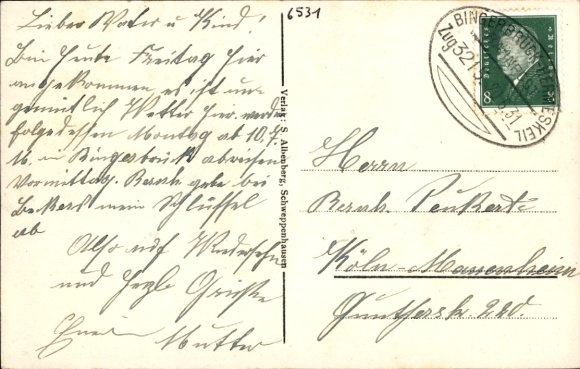 6531
Lieber Vater u Kind!
Bin Heute Freitag hier
angekommen, es ist un-
gemütlich Wetter hier, werde
folgedessen Montag ab 10.
in Bingerbrück abreisen
Vormittag. Bernh gebe bei
Bekers mein Schlüssel
ab
Also auf Wiedersehn
und Herzl Grüße
Eure
Mutter
Verlag: S. Albenberg, Schweppenhausen
BINGERBRÜCK HERMESKEIL
Zug 321
Deutsches Reich
8
Herrn
Bernh. Peukert
Köln-Mauenheim
Guntherstr. 220.